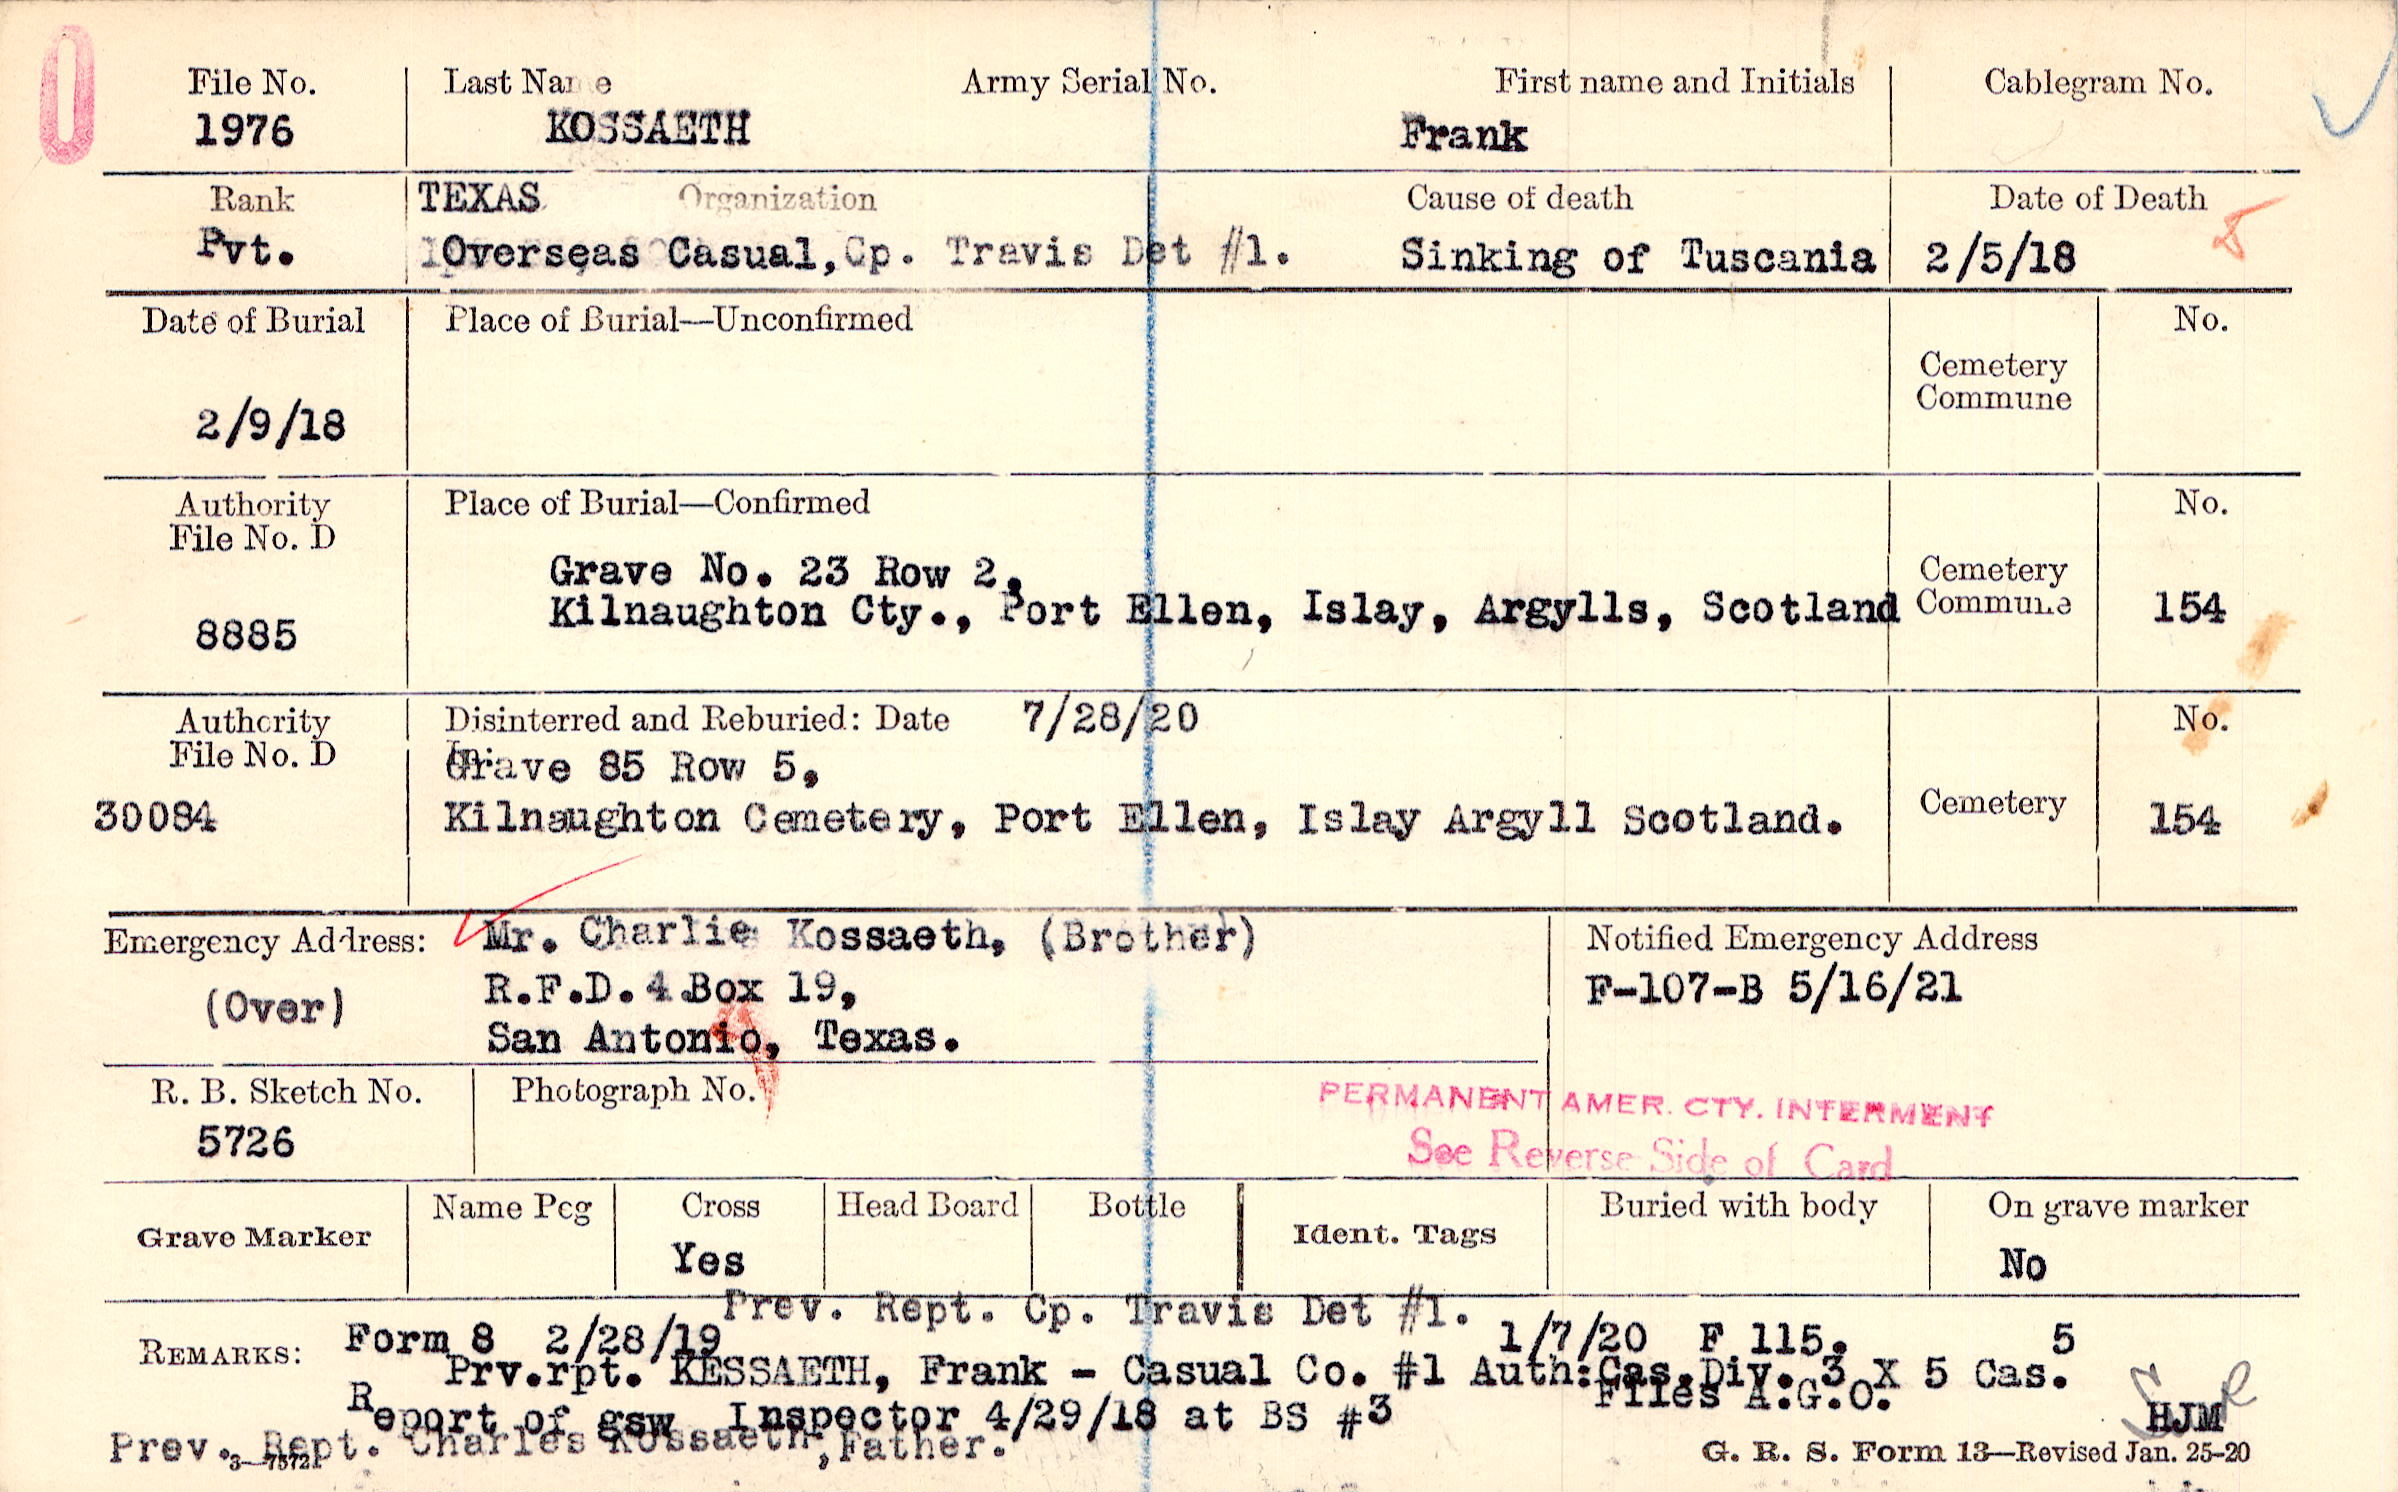 File No. Last Name Army Serial No. First name and Initials Cablegram No.
1976 KOSSAETH Frank
Rank TEXAS Organization Cause of death Date of Death
Pvt. Overseas Casual, Cp. Travis Det #1. Sinking of Tuscania 2/5/18
Date of Burial Place of Burial—Unconfirmed No.
Cemetery
Commune
2/9/18
Authority Place of Burial—Confirmed No.
File No. D
Grave No. 23 Row 2, Cemetery
Kilnaughton Cty., Port Ellen, Islay, Argylls, Scotland Commune 154
8885
Authority Disinterred and Reburied: Date 7/28/20 No.
File No. D
Grave 85 Row 5,
30084 Kilnaughton Cemetery, Port Ellen, Islay Argyll Scotland. Cemetery 154
Emergency Address: Mr. Charlie Kossaeth, (Brother) Notified Emergency Address
(Over) R.F.D. 4 Box 19, F-107-B 5/16/21
San Antonio, Texas.
R. B. Sketch No. Photograph No.
PERMANENT AMER. CTY. INTERMENT
5726 See Reverse Side of Card
Grave Marker Name Peg Cross Head Board Bottle Ident. Tags Buried with body On grave marker
Yes No
Prev. Rept. Cp. Travis Det #1.
REMARKS: Form 8 2/28/19 1/7/20 F 115. 5
Prv.rpt. KESSAETH, Frank - Casual Co. #1 Auth:Cas.Div. 3 X 5 Cas.
Files A.G.O.
Report of gsw Inspector 4/29/18 at BS #3 HJM
Prev. Rept. Charles Kossaeth, Father.
3—7572 G. R. S. Form 13—Revised Jan. 25-20